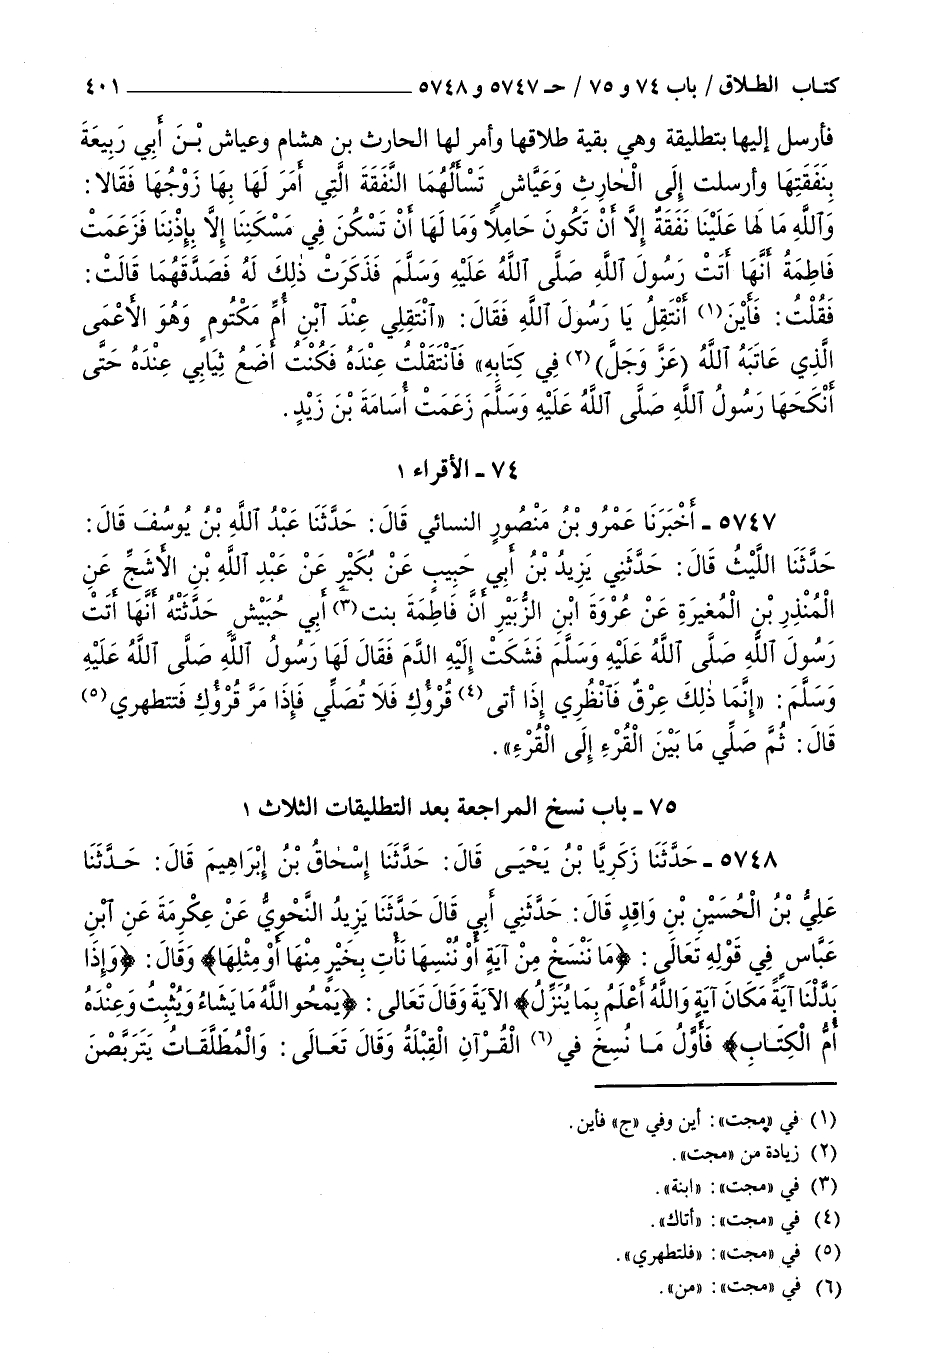 كتاب الطلاق / باب ٧٤ و ٧٥ / حـ ٥٧٤٧ و ٥٧٤٨ ٤٠١
فأرسل إليها بتطليقة وهي بقية طلاقها وأمر لها الحارث بن هشام وعياش بْنَ أَبِي رَبِيعَةَ
بِنَفَقَتِهَا وأرسلت إِلَى الْحَارِثِ وَعَيَّاشٍ تَسْأَلُهُمَا النَّفَقَةَ الَّتِي أَمَرَ لَهَا بِهَا زَوْجُهَا فَقَالا:
وَٱللَّهِ مَا لَها عَلَيْنَا نَفَقَةٌ إِلَّا أَنْ تَكُونَ حَامِلًا وَمَا لَهَا أَنْ تَسْكُنَ فِي مَسْكَنِنَا إِلَّا بِإِذْنِنَا فَزَعَمَتْ
فَاطِمَةُ أَنَّهَا أَتَتْ رَسُولَ ٱللَّهِ صَلَّى ٱللَّهُ عَلَيْهِ وَسَلَّمَ فَذَكَرَتْ ذٰلِكَ لَهُ فَصَدَّقَهُمَا قَالَتْ:
فَقُلْتُ: فَأَيْنَ(١) أَنْتَقِلُ يَا رَسُولَ ٱللَّهِ فَقَالَ: «ٱنْتَقِلِي عِنْدَ ٱبْنِ أُمِّ مَكْتُومٍ وَهُوَ الأَعْمَى
الَّذِي عَاتَبَهُ ٱللَّهُ (عَزَّ وَجَلَّ)(٢) فِي كِتَابِهِ» فَٱنْتَقَلْتُ عِنْدَهُ فَكُنْتُ أَضَعُ ثِيَابِي عِنْدَهُ حَتَّى
أَنْكَحَهَا رَسُولُ ٱللَّهِ صَلَّى ٱللَّهُ عَلَيْهِ وَسَلَّمَ زَعَمَتْ أُسَامَةَ بْنَ زَيْدٍ.
٧٤ ـ الأقراء ١
٥٧٤٧ ـ أَخْبَرَنَا عَمْرُو بْنُ مَنْصُورٍ النسائي قَالَ: حَدَّثَنَا عَبْدُ ٱللَّهِ بْنُ يُوسُفَ قَالَ:
حَدَّثَنَا اللَّيْثُ قَالَ: حَدَّثَنِي يَزِيدُ بْنُ أَبِي حَبِيبٍ عَنْ بُكَيْرٍ عَنْ عَبْدِ ٱللَّهِ بْنِ الأَشَجِّ عَنِ
الْمُنْذِرِ بْنِ الْمُغِيرَةِ عَنْ عُرْوَةَ ابْنِ الزُّبَيْرِ أَنَّ فَاطِمَةَ بنت(٣) أَبِي حُبَيْشٍ حَدَّثَتْهُ أَنَّهَا أَتَتْ
رَسُولَ ٱللَّهِ صَلَّى ٱللَّهُ عَلَيْهِ وَسَلَّمَ فَشَكَتْ إِلَيْهِ الدَّمَ فَقَالَ لَهَا رَسُولُ ٱللَّهِ صَلَّى ٱللَّهُ عَلَيْهِ
وَسَلَّمَ: «إِنَّمَا ذٰلِكَ عِرْقٌ فَٱنْظُرِي إِذَا أتى(٤) قُرْؤُكِ فَلَا تُصَلِّي فَإِذَا مَرَّ قُرْؤُكِ فَتتطهري(٥)
قَالَ: ثُمَّ صَلِّي مَا بَيْنَ الْقُرْءِ إِلَى الْقُرْءِ».
٧٥ ـ باب نسخ المراجعة بعد التطليقات الثلاث ١
٥٧٤٨ ـ حَدَّثَنَا زَكَرِيَّا بْنُ يَحْيَى قَالَ: حَدَّثَنَا إِسْحَاقُ بْنُ إِبْرَاهِيمَ قَالَ: حَدَّثَنَا
عَلِيُّ بْنُ الْحُسَيْنِ بْنِ وَاقِدٍ قَالَ: حَدَّثَنِي أَبِي قَالَ حَدَّثَنَا يَزِيدُ النَّحْوِيُّ عَنْ عِكْرِمَةَ عَنِ ٱبْنِ
عَبَّاسٍ فِي قَوْلِهِ تَعَالَى: ﴿مَا نَنْسَخْ مِنْ آيَةٍ أَوْ نُنْسِهَا نَأْتِ بِخَيْرٍ مِنْهَا أَوْ مِثْلِهَا﴾ وَقَالَ: ﴿وَإِذَا
بَدَّلْنَا آيَةً مَكَانَ آيَةٍ وَاللَّهُ أَعْلَمُ بِمَا يُنَزِّلُ﴾ الآيَةَ وَقَالَ تَعَالى: ﴿يَمْحُو اللَّهُ مَا يَشَاءُ وَيُثْبِتُ وَعِنْدَهُ
أُمُّ الْكِتَابِ﴾ فَأَوَّلُ مَا نُسِخَ في(٦) الْقُرْآنِ الْقِبْلَةُ وَقَالَ تَعَالَى: وَالْمُطَلَّقَاتُ يَتَرَبَّصْنَ
(١) في «مجت»: أين وفي «ج» فأين.
(٢) زيادة من «مجت».
(٣) في «مجت»: «ابنة».
(٤) في «مجت»: «أتاك».
(٥) في «مجت»: «فلتطهري».
(٦) في «مجت»: «من».